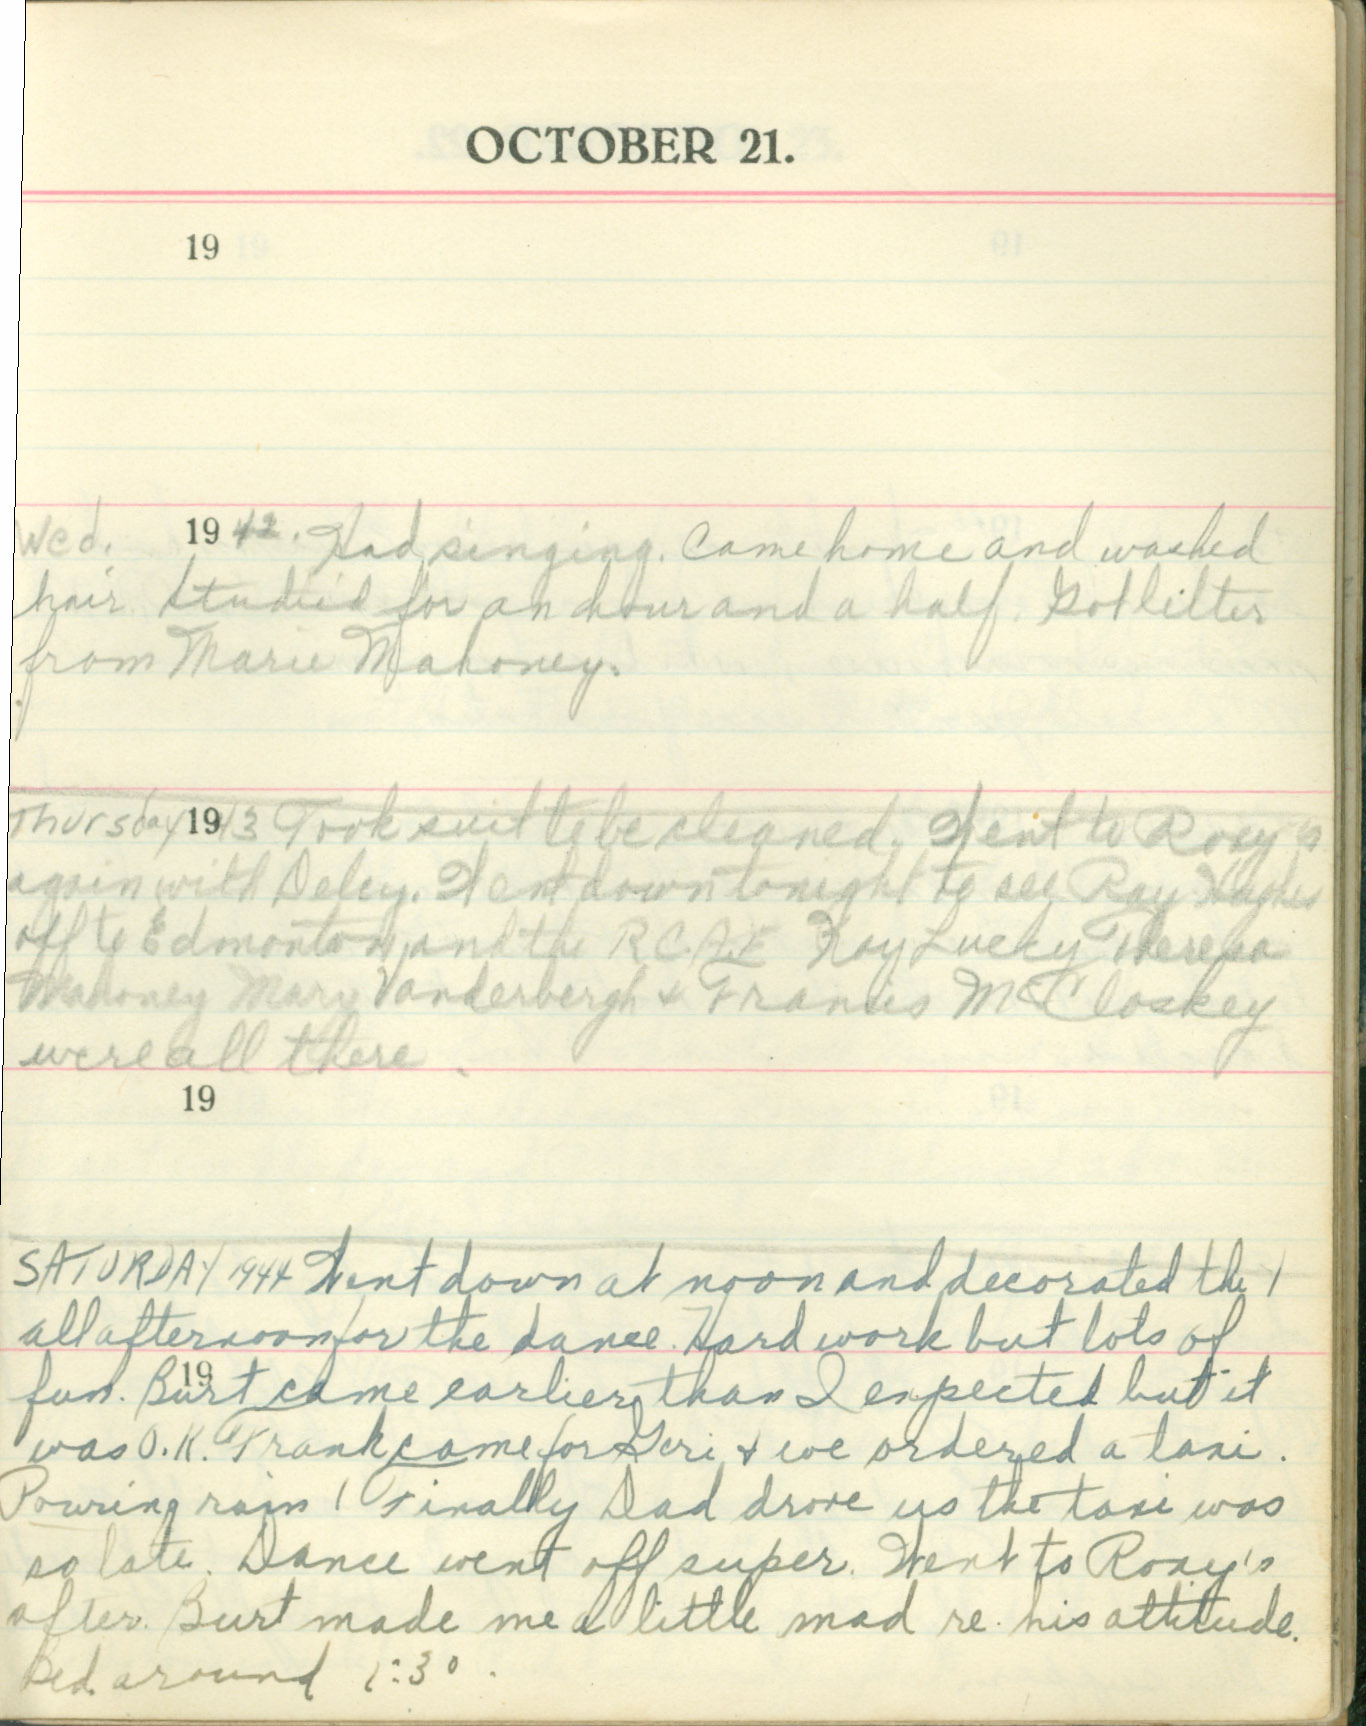 OCTOBER 21.
19
Wed. 1942. Had singing. Came home and washed
hair. Studied for an hour and a half. Got letter
from Marie Mahoney.
Thursday 1943 Took suit to be cleaned. Went to Roxy's
again with Delcy. Went down tonight to see Ray Hughes
off to Edmonton and the R.C.A.F. Kay Lucky Theresa
Mahoney Mary Vanderbergh & Francis McCloskey
were all there.
19
SATURDAY 1944 Went down at noon and decorated the
all afternoon for the dance. Hard work but lots of
19
fun. Burt came earlier than I expected but it
was O.K. Frank came for Geri & we ordered a taxi.
Pouring rain! Finally Dad drove us the taxi was
so late. Dance went off super. Went to Roxy's
after. Burt made me a little mad re. his attitude.
Bed around 1:30.